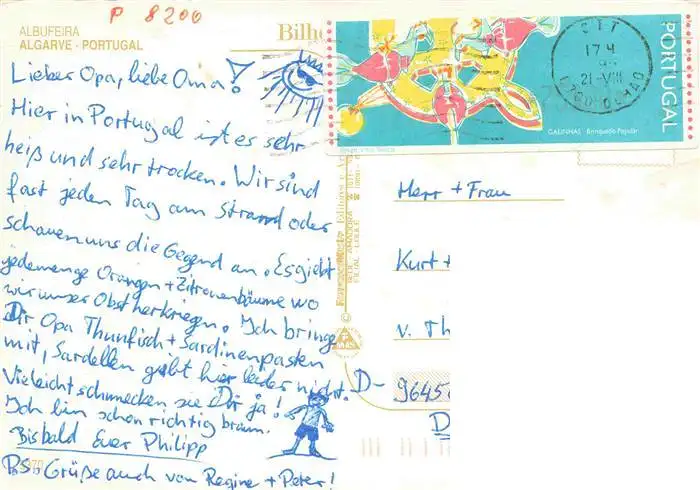 P 8200
ALBUFEIRA
ALGARVE - PORTUGAL
Bilhe
Lieber Opa, liebe Oma!
Hier in Portugal ist es sehr
heiß und sehr trocken. Wir sind
fast jeden Tag am Strand oder
schauen uns die Gegend an. Es giebt
jedemenge Orangen + Zitronenbäume wo
wir unser Obst herkriegen. Ich bringe
Dir Opa Thunfisch + Sardinenpasten
mit, Sardellen gibt hier leider nicht.
Vieleicht schmecken sie Dir ja!
Ich bin schon richtig braun.
Bis bald Euer Philipp
PS. Grüße auch von Regine + Peter!
PORTUGAL
CTT
17 4
21-VIII
OLHAO
GALINHAS - Brinquedo Popular
Herr + Frau
Kurt +
v. Th
D- 9645
D